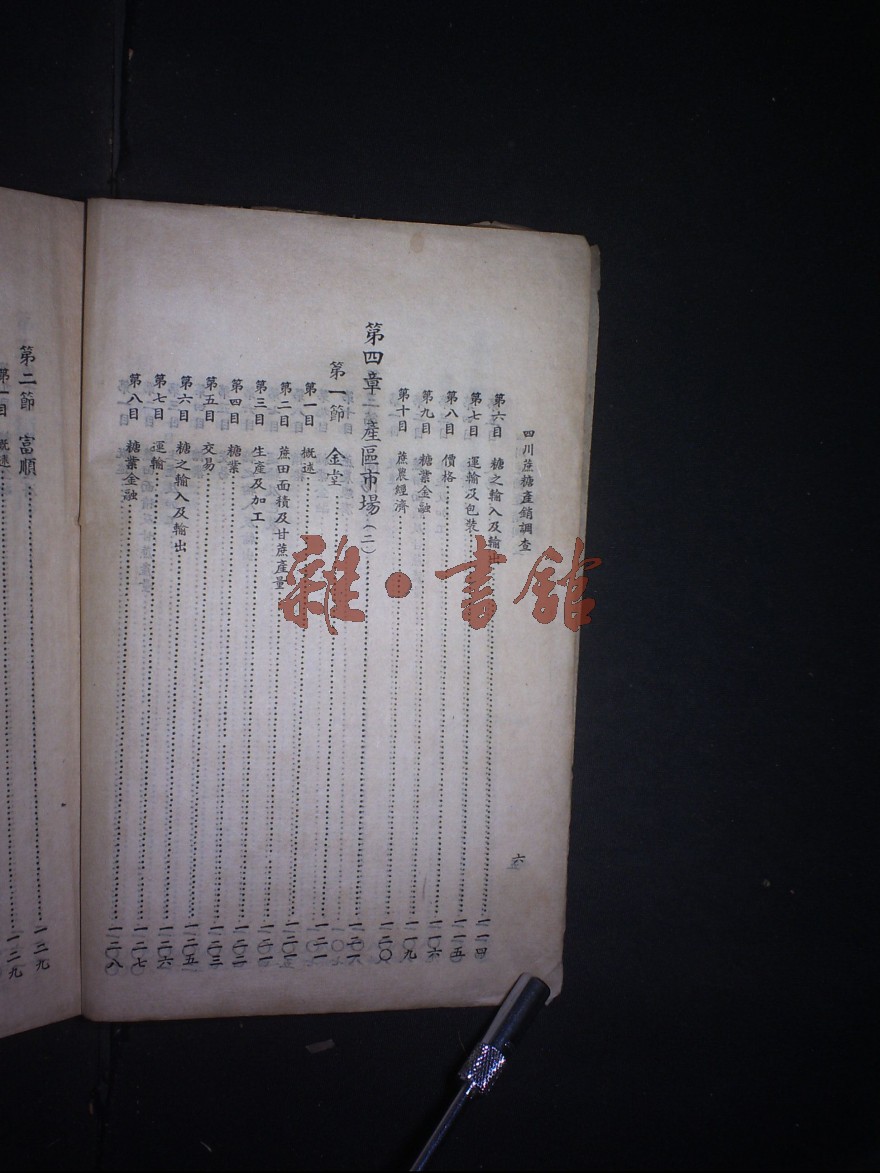 四川蔗糖產銷調查
六
第六目 糖之輸入及輸出 一一四
第七目 運輸及包裝 一一五
第八目 價格 一一六
第九目 糖業金融 一一九
第十目 蔗農經濟 一二〇
第四章 產區市場(二) 一二一
第一節 金堂
第一目 概述 一二一
第二目 蔗田面積及甘蔗產量 一二一
第三目 生產及加工 一二一
第四目 糖業 一二二
第五目 交易 一二三
第六目 糖之輸入及輸出 一二五
第七目 運輸 一二六
第八目 糖業金融 一二八
第二節 富順 一二九
第一目 概述 一二九
雜·書館